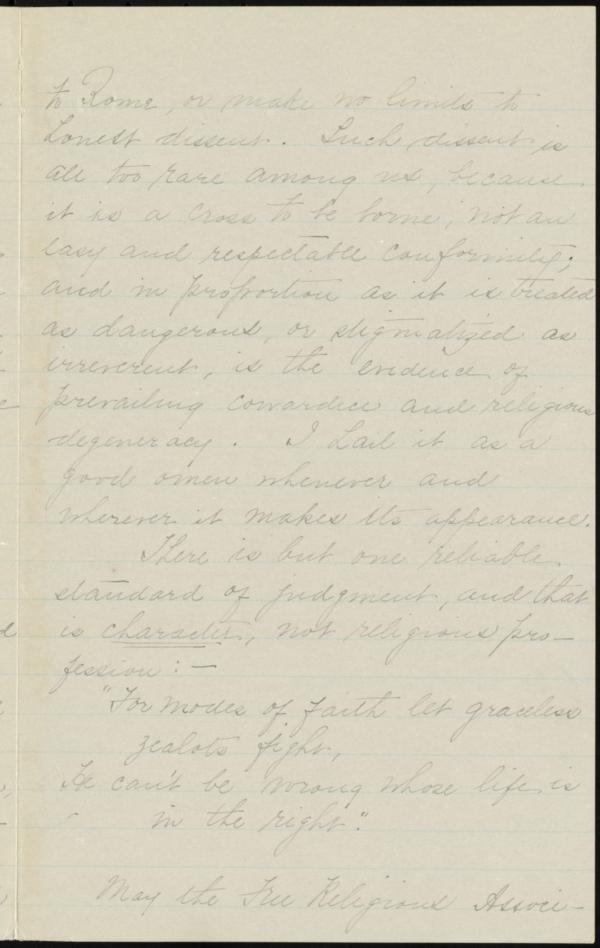 to Rome, or make no limits to
honest dissent. Such dissent is
all too rare among us, because
it is a cross to be borne, not an
easy and respectable conformity;
and in proportion as it is treated
as dangerous, or stigmatized as
irreverent, is the evidence of
prevailing cowardice and religious
degeneracy. I hail it as a
good omen whenever and
wherever it makes its appearance.
There is but one reliable
standard of judgment, and that
is character, not religious pro-
fession:—
"For modes of faith let graceless
zealots fight,
He can't be wrong whose life is
in the right."
May the Free Religious Associ-